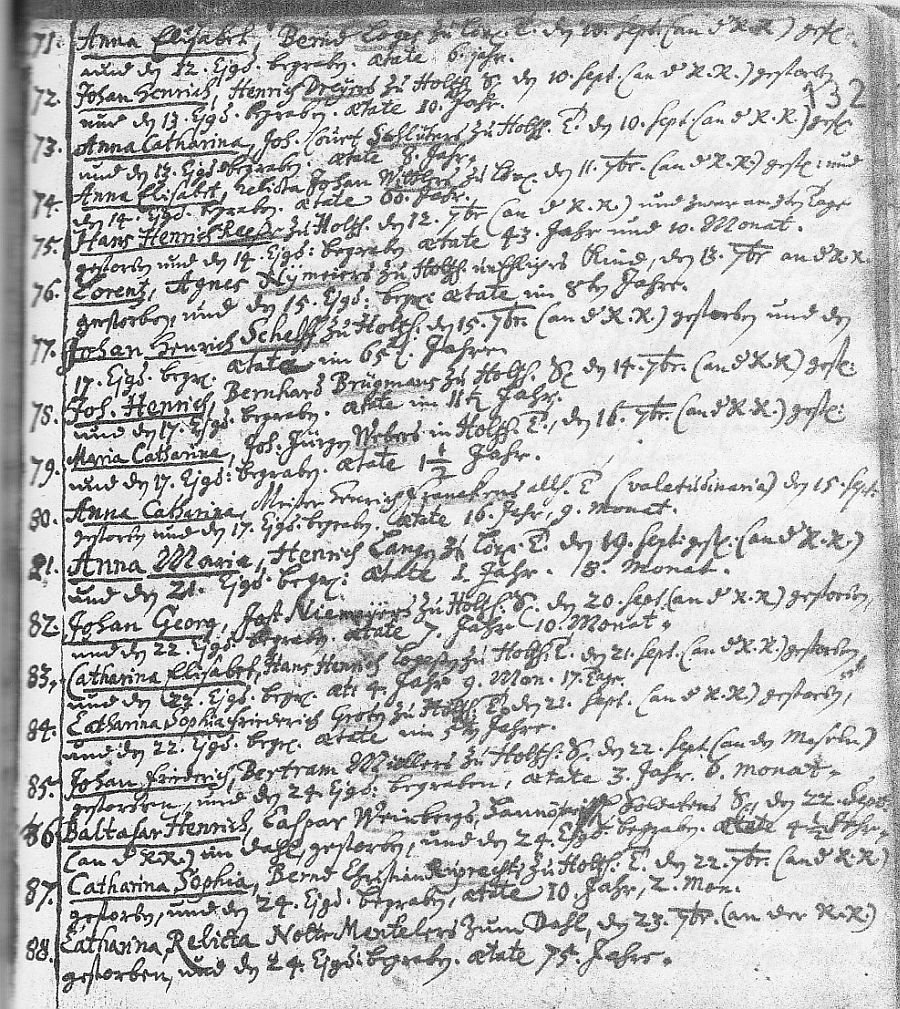 71. Anna Elisabet, Bernd Loges zu Lox. T. den 10. Sept. (an d R.R.) gest:
und den 12. Ejusd. begraben. ætate 6. Jahr.
132
72. Johan Henrich, Henrich Dreyers zu Holth. S. den 10. Sept. (an d R.R.) gestorben
und den 13. Ejusd. begraben. ætate 10. Jahr.
73. Anna Catharina, Joh. Court Schlüters zu Holth. T. den 10. Sept. (an d R.R.) gest:
und den 13. Ejusd. begraben. ætate 8. Jahr.
74. Anna Elisabet, relicta Johan zu Lox. den 11. 7br. (an d R.R.) gest: und
den 14. Ejusd. begraben. ætate 60. Jahr.
75. Hans Henrich zu Holth. den 12. 7br (an d R.R.) und zwar am Tage
gestorben und den 14. Ejusd: begraben ætate 43. Jahr und 10. Monat.
76. Lorentz, Agnes Nymeiers zu Holth. Kind, den 13. 7br an d R.R.
gestorben, und den 15. Ejusd: begr. ætate im 8ten Jahre.
77. Johan Henrich Schelff zu Holth. den 15. 7br. (an d R.R.) gestorben und den
17. Ejusd. begr. ætate im 65t. Jahren
78. Joh. Henrich, Bernhard Brügmans zu Holth. S. den 14. 7br. (an d R.R) gest:
und den 17. Ejusd. begraben. ætate im Jahr.
79. Maria Catharina, Joh: Jürgen Webers in Holth. T., den 16. 7br. (an d R.R.) gest:
und den 17. Ejusd: begraben. ætate 1 1/2 Jahr.
80. Anna Catharina, Meister Henrich Franckens allh. T. (valetudinaria) den 15. Sept:
gestorben und den 17. Ejusd: begraben. ætate 16. Jahr, 9. Monat.
81. Anna Maria, Henrich Langen zu Lox. T. den 19. Sept: gest: (an d R.R.)
und den 21. Ejusd. begr: ætate 1. Jahr. 8. Monat.
82. Johan Georg, Jost Niemeyers zu Holth. S. den 20. Sept. (an d R.R) gestorben,
und den 22. Ejusd. begraben. ætate 7. Jahr 10. Monat.
83. Catharina Elisabet, Hans Henrich zu Holth. T. den 21. Sept. (an d R.R.) gestorben,
und den 22. Ejusd. begr. æt: 4. Jahr 9. Mon. 17. Tage.
84. Catharina Sophia, Friederich Groten zu Holth. T. den 21. Sept. (an d R.R) gestorben,
und den 22. Ejusd. begr. ætate im 5ten Jahre.
85. Johan Friederich, Bertram Müllers zu Holth: S. den 22. Sept. (an den Maseln)
gestorben, und den 24. Ejusd: begraben, ætate 3. Jahr. 6. Monat.
86. Baltasar Henrich, Caspar Weinbergs, Soldatens S. den 22. Sept.
(an d RR.) im Dahl, gestorben, und den 24. Ejusd: begraben. ætate 4 1/2 Jahr.
87. Catharina Sophia, Bernd Christian zu Holth: T. den 22. 7br. (an d R.R)
gestorben, und den 24. Ejusd. begraben, ætate 10. Jahr, 2. Mon.
88. Catharina, Relicta Nolte Mentelers zum Dahl, den 23. 7br. (an der R.R)
gestorben, und den 24. Ejusd: begraben. ætate 75. Jahre.